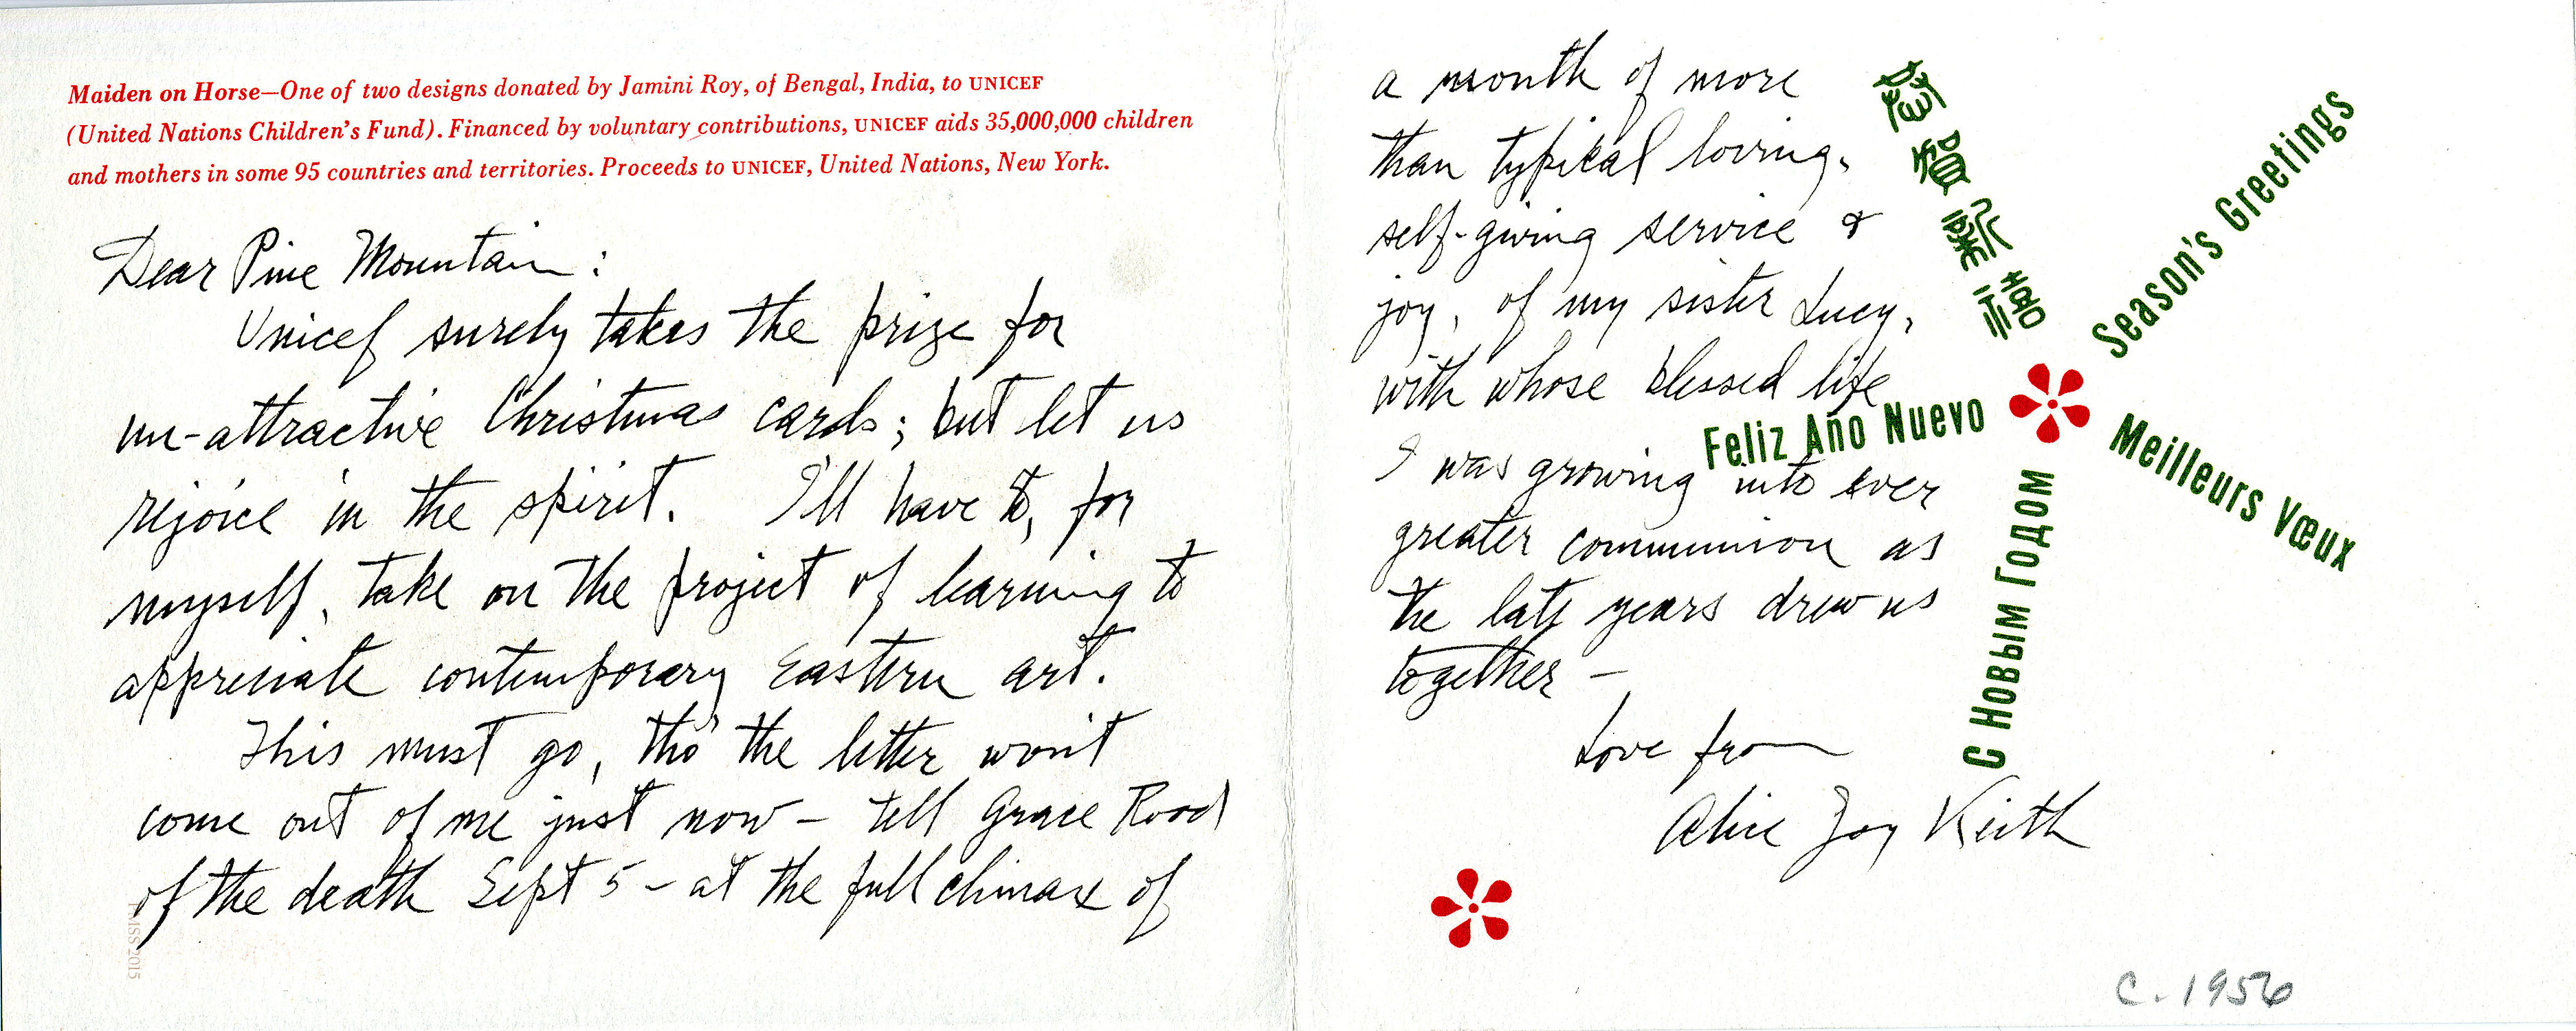 Maiden on Horse—One of two designs donated by Jamini Roy, of Bengal, India, to UNICEF
(United Nations Children's Fund). Financed by voluntary contributions, UNICEF aids 35,000,000 children
and mothers in some 95 countries and territories. Proceeds to UNICEF, United Nations, New York.
Dear Pine Mountain:
Unicef surely takes the prize for
un-attractive Christmas cards; but let us
rejoice in the spirit. I'll have to, for
myself, take on the project of learning to
appreciate contemporary Eastern art.
This must go, tho' the letter won't
come out of me just now - tell Grace Rood
of the death Sept 5 - at the full climax of
MSS 2015
a month of more
than typical loving,
self-giving service &
joy, of my sister Lucy,
with whose blessed life
I was growing into ever
greater communion as
the late years drew us
together -
Love from
Alice Joy Keith
恭賀新禧
Season's Greetings
Feliz Año Nuevo
Meilleurs Vœux
С Новым Годом
c. 1956